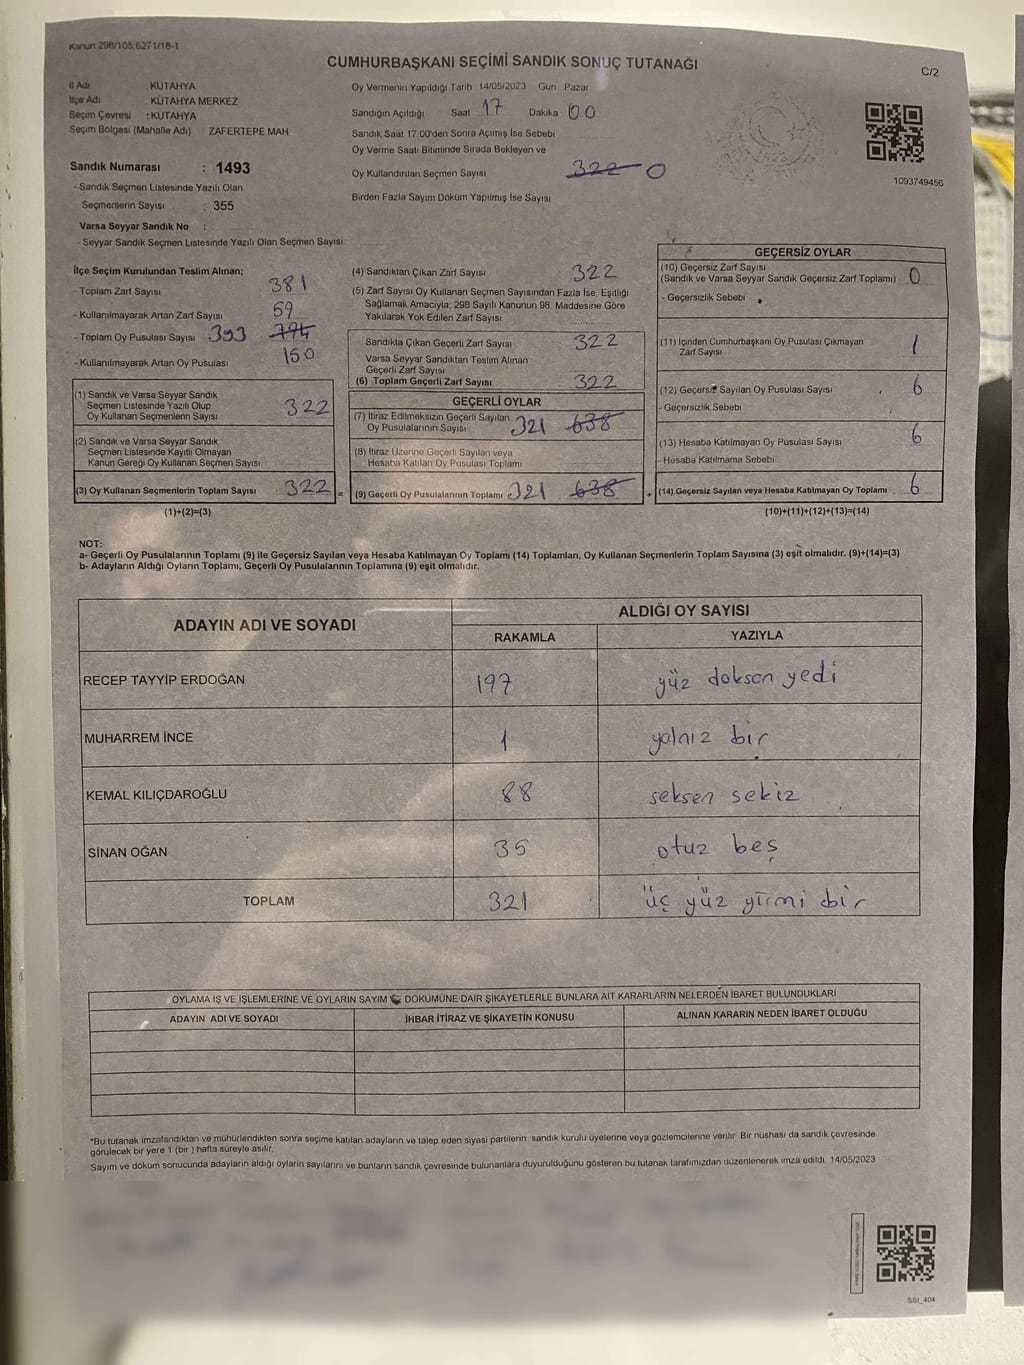 Kanun 298/105,6271/18-1
CUMHURBAŞKANI SEÇİMİ SANDIK SONUÇ TUTANAĞI
C/2
İl Adı : KÜTAHYA
İlçe Adı : KÜTAHYA MERKEZ
Seçim Çevresi : KÜTAHYA
Seçim Bölgesi (Mahalle Adı) : ZAFERTEPE MAH
Sandık Numarası : 1493
- Sandık Seçmen Listesinde Yazılı Olan
Seçmenlerin Sayısı : 355
Varsa Seyyar Sandık No :
- Seyyar Sandık Seçmen Listesinde Yazılı Olan Seçmen Sayısı:
Oy Vermenin Yapıldığı Tarih 14/05/2023 Gün Pazar
Sandığın Açıldığı Saat 17 Dakika 00
Sandık Saat 17.00'den Sonra Açımış İse Sebebi
Oy Verme Saati Bitiminde Sırada Bekleyen ve
Oy Kullandırılan Seçmen Sayısı 322 0
Birden Fazla Sayım Döküm Yapılmış İse Sayısı
1093749456
İlçe Seçim Kurulundan Teslim Alınan;
- Toplam Zarf Sayısı 381
- Kullanılmayarak Artan Zarf Sayısı 59
- Toplam Oy Pusulası Sayısı 393 794
- Kullanılmayarak Artan Oy Pusulası 150
(1) Sandık ve Varsa Seyyar Sandık
Seçmen Listesinde Yazılı Olup
Oy Kullanan Seçmenlerin Sayısı 322
(2) Sandık ve Varsa Seyyar Sandık
Seçmen Listesinde Kayıtlı Olmayan
Kanun Gereği Oy Kullanan Seçmen Sayısı
(3) Oy Kullanan Seçmenlerin Toplam Sayısı 322 =
(1)+(2)=(3)
(4) Sandıktan Çıkan Zarf Sayısı 322
(5) Zarf Sayısı Oy Kullanan Seçmen Sayısından Fazla İse, Eşitliği
Sağlamak Amacıyla, 298 Sayılı Kanunun 98. Maddesine Göre
Yakılarak Yok Edilen Zarf Sayısı
Sandıkta Çıkan Geçerli Zarf Sayısı 322
Varsa Seyyar Sandıktan Teslim Alınan
Geçerli Zarf Sayısı
(6) Toplam Geçerli Zarf Sayısı 322
GEÇERLİ OYLAR
(7) İtiraz Edilmeksizin Geçerli Sayılan
Oy Pusulalarının Sayısı 321 638
(8) İtiraz Üzerine Geçerli Sayılan veya
Hesaba Katılan Oy Pusulası Toplamı
(9) Geçerli Oy Pusulalarının Toplamı 321 638 +
GEÇERSİZ OYLAR
(10) Geçersiz Zarf Sayısı
(Sandık ve Varsa Seyyar Sandık Geçersiz Zarf Toplamı) 0
- Geçersizlik Sebebi
(11) İçinden Cumhurbaşkanı Oy Pusulası Çıkmayan
Zarf Sayısı 1
(12) Geçersiz Sayılan Oy Pusulası Sayısı 6
- Geçersizlik Sebebi
(13) Hesaba Katılmayan Oy Pusulası Sayısı 6
- Hesaba Katılmama Sebebi
(14) Geçersiz Sayılan veya Hesaba Katılmayan Oy Toplamı : 6
(10)+(11)+(12)+(13)=(14)
NOT:
a- Geçerli Oy Pusulalarının Toplamı (9) ile Geçersiz Sayılan veya Hesaba Katılmayan Oy Toplamı (14) Toplamları, Oy Kullanan Seçmenlerin Toplam Sayısına (3) eşit olmalıdır. (9)+(14)=(3)
b- Adayların Aldığı Oyların Toplamı, Geçerli Oy Pusulalarının Toplamına (9) eşit olmalıdır.
ADAYIN ADI VE SOYADI
ALDIĞI OY SAYISI
RAKAMLA YAZIYLA
RECEP TAYYİP ERDOĞAN 197 yüz doksan yedi
MUHARREM İNCE 1 yalnız bir
KEMAL KILIÇDAROĞLU 88 seksen sekiz
SİNAN OĞAN 35 otuz beş
TOPLAM 321 üç yüz yirmi bir
OYLAMA İŞ VE İŞLEMLERİNE VE OYLARIN SAYIM DÖKÜMÜNE DAİR ŞİKAYETLERLE BUNLARA AİT KARARLARIN NELERDEN İBARET BULUNDUKLARI
ADAYIN ADI VE SOYADI İHBAR İTİRAZ VE ŞİKAYETİN KONUSU ALINAN KARARIN NEDEN İBARET OLDUĞU
*Bu tutanak imzalandıktan ve mühürlendikten sonra seçime katılan adayların ve talep eden siyasi partilerin sandık kurulu üyelerine veya gözlemcilerine verilir. Bir nüshası da sandık çevresinde
görülecek bir yere 1 (bir ) hafta süreyle asılır.
Sayım ve döküm sonucunda adayların aldığı oyların sayılarını ve bunların sandık çevresinde bulunanlara duyurulduğunu gösteren bu tutanak tarafımızdan düzenlenerek imza edildi. 14/05/2023
SSI_404